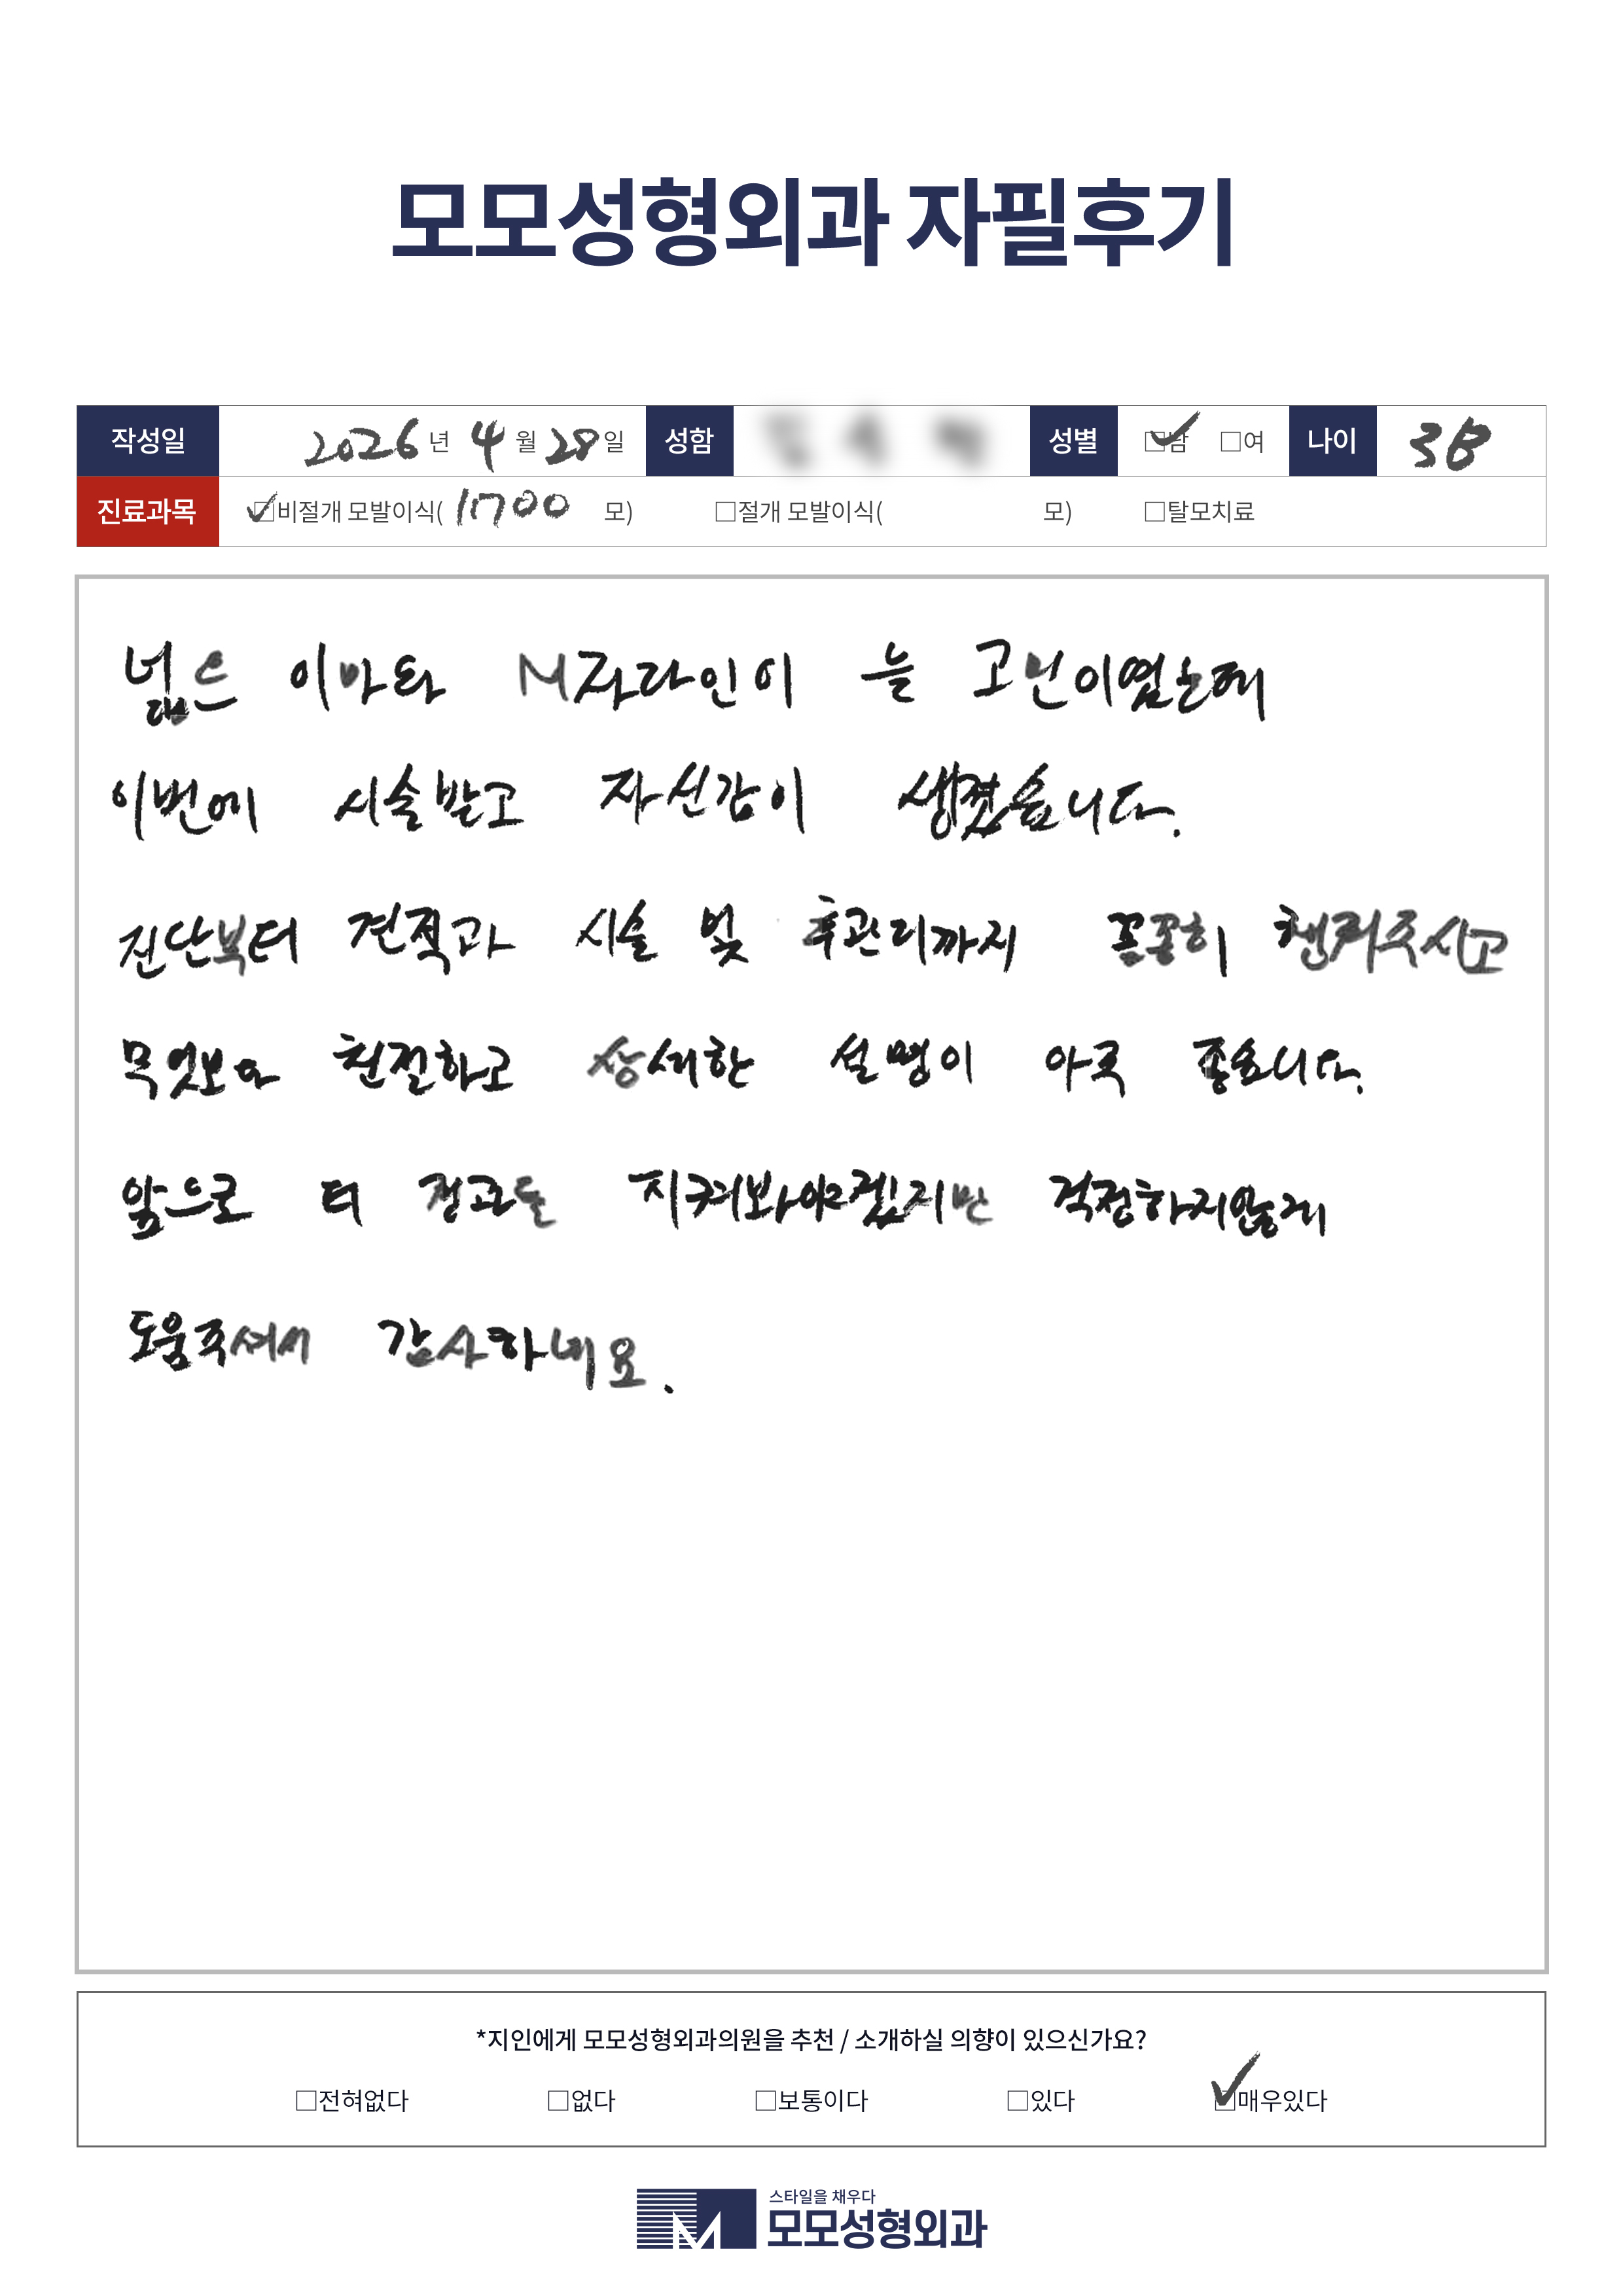 모모성형외과 자필후기
작성일 2026년 4월 28일 성함 성별 □남 □여 나이 38
진료과목 □비절개 모발이식( 1700 모) □절개 모발이식( 모) □탈모치료
넓은 이마와 M자라인이 늘 고민이였는데
이번에 시술받고 자신감이 생겼습니다.
진단부터 견적과 시술 및 후관리까지 꼼꼼히 챙겨주시고
무엇보다 친절하고 상세한 설명이 아주 좋습니다.
앞으로 더 경과를 지켜봐야겠지만 걱정하지않게
도움주셔서 감사하네요.
*지인에게 모모성형외과의원을 추천 / 소개하실 의향이 있으신가요?
□전혀없다 □없다 □보통이다 □있다 □매우있다
스타일을 채우다
모모성형외과